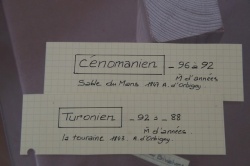 Cénomanien _ 96 à 92
M d'années
Sable du Mans 1847 A. d'Orbigny
Turonien _ 92 à _ 88
M d'années
la touraine A. d'Orbigny